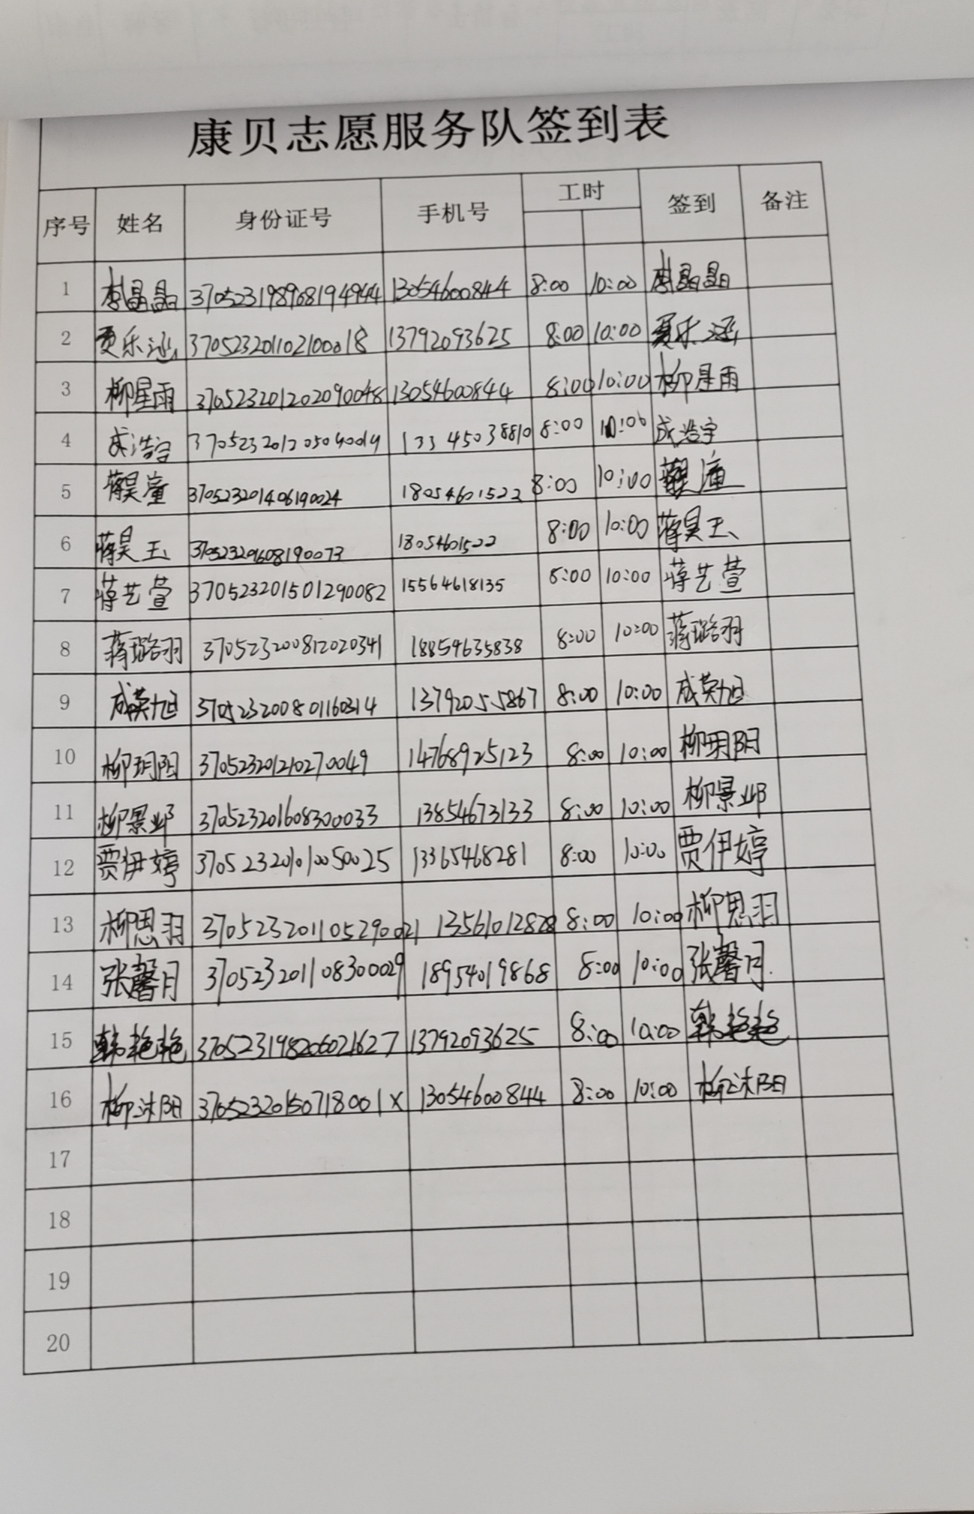 康贝志愿服务队签到表
序号 姓名 身份证号 手机号 工时 签到 备注
1 李晶晶 13054600844 8:00 10:00 李晶晶
2 贾乐涵 370523201102100018 13792093625 8:00 10:00 贾乐涵
3 柳星雨 370523201202090048 13054600844 8:00 10:00 柳星雨
4 成浩宇 370523201205040014 13345038810 8:00 10:00 成浩宇
5 蒋昊潼 370523201406190024 18054601522 8:00 10:00 蒋昊潼
6 蒋昊玉 18054601522 8:00 10:00 蒋昊玉
7 蒋艺萱 370523201501290082 15564618135 8:00 10:00 蒋艺萱
8 蒋璐羽 370523200812020341 18854635838 8:00 10:00 蒋璐羽
9 成英旭 370523200801160314 13792055867 8:00 10:00 成英旭
10 柳玥阳 370523201210270049 14768925123 8:00 10:00 柳玥阳
11 柳景邺 370523201608300033 13854673133 8:00 10:00 柳景邺
12 贾伊婷 370523201010050025 13365468281 8:00 10:00 贾伊婷
13 柳思羽 370523201105290021 13561012828 8:00 10:00 柳思羽
14 张馨月 370523201108300029 18954019868 8:00 10:00 张馨月
15 韩艳艳 370523198206021627 13792093625 8:00 10:00 韩艳艳
16 柳沐阳 37052320150718001X 13054600844 8:00 10:00 柳沐阳
17
18
19
20